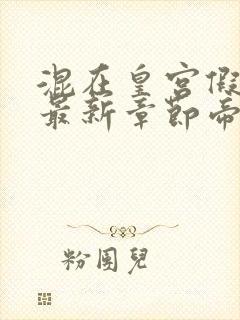 混在皇宮假
最新章節帝
粉團兒